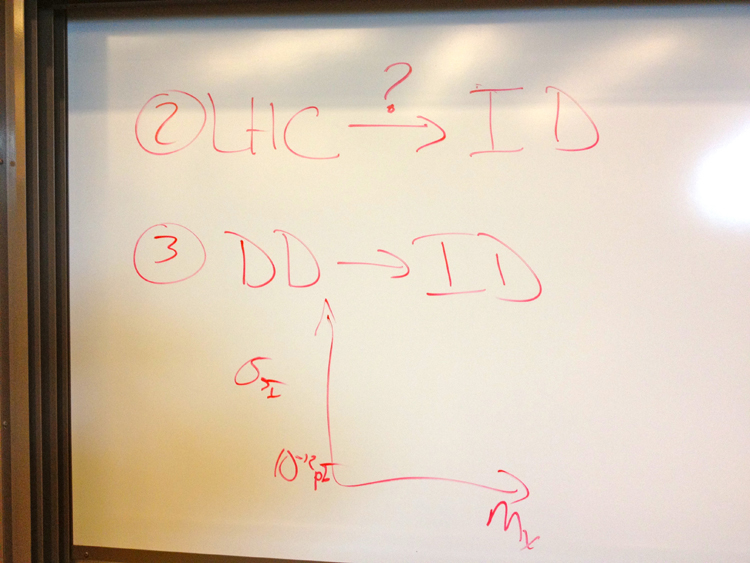 ?
② LHC → ID
③ DD → ID
σ_SI
10⁻¹² pb
m_χ